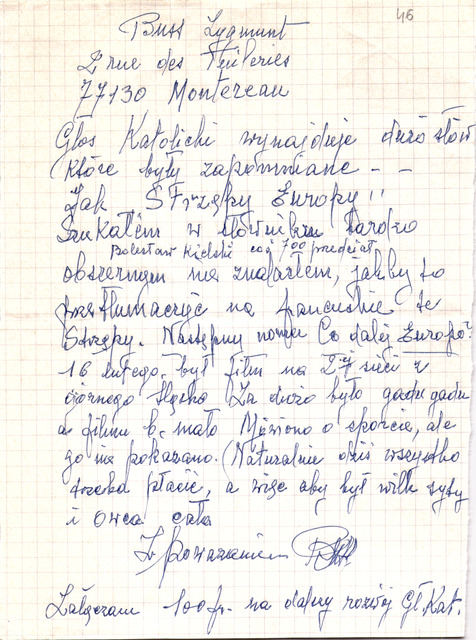 46
Buss Zygmunt
2 rue des Tuileries
77130 Montereau
Głos Katolicki wynajduje dużo słów
które były zapomniane - -
Jak "Strzępy Europy"!!
Szukałem w słowniku bardzo
Bolesław Kielski coś 700
obszernym nie znalazłem, jakby to
przetłumaczyć na francuskie te
Strzępy. Następny numer Co dalej Europo?
16 lutego. był film na 2ej sieci z
górnego Śląska Za dużo było gadu gadu
a filmu b. mało Mówiono o sporcie, ale
go nie pokazano. (Naturalnie dziś wszystko
trzeba płacić, a więc aby był wilk syty
i owca cała
Z poważaniem
Załączam 100 fr. na dalszy rozwój Gł. Kat.